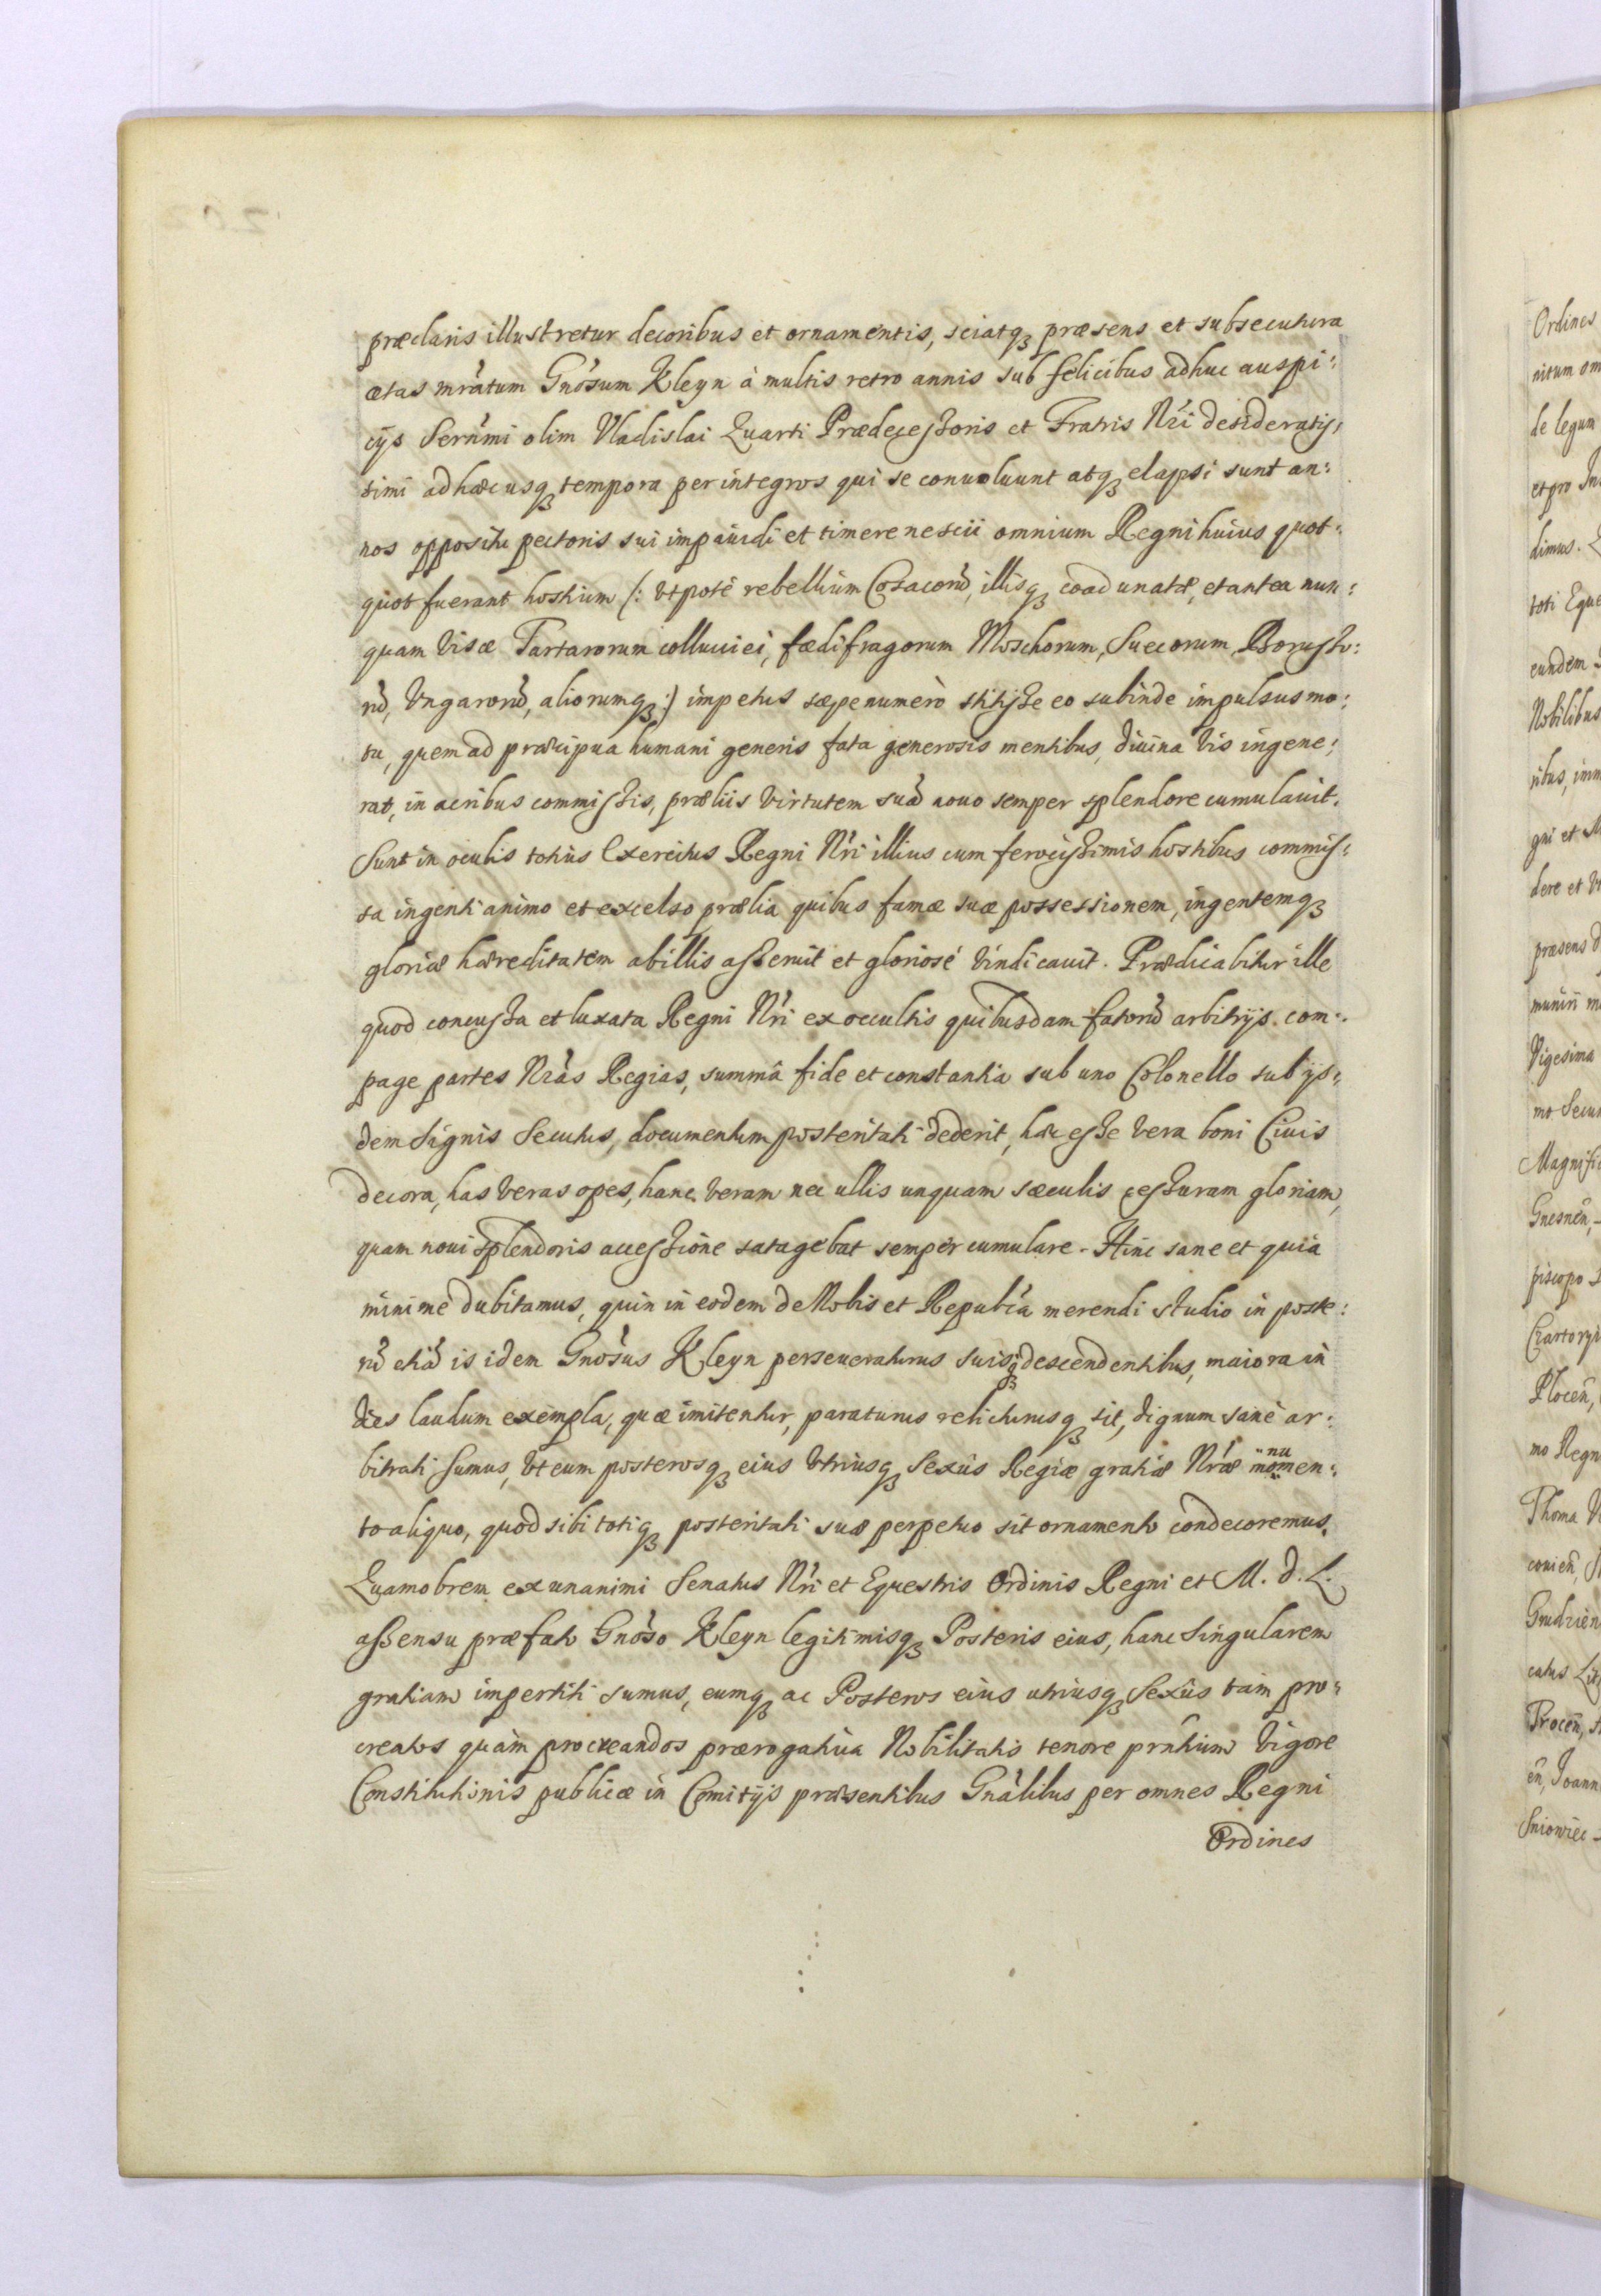 præclaris illustretur decoribus et ornamentis, sciatqꝫ præsens et subsecutura
ætas mrãtum Gnõsum Kleyn à multis retro annis sub felicibus adhuc auspi:
cijs Sernm̃i olim Vladislai Quarti Prædecessoris et Fratris Nr̃i desideratis:
simi ad hæcusqꝫ tempora per integros qui se conuoluunt atqꝫ elapsi sunt an:
nos oppositu pectoris sui impauidi et timere nescii omnium Regni huius quot:
quot fuerant hostium (: vtpote rebellium Cosacorũ, illisqꝫ coadunatæ, et antea nun:
quam visæ Tartarorum colluuiei, fædifragorum Moschorum, Suecorum, Borusso:
rũ, Vngarorũ, aliorumqꝫ :) impetus sæpenumerò stitisse eo subinde impulsus mo:
tu, quem ad præcipua humani generis fata generosis mentibus, diuina vis ingene:
rat, in acribus commissis, præliis virtutem suã nouo semper splendore cumulauit.
Sunt in oculis totius Exercitus Regni Nr̃i illius cum ferocissimis hostibus commis:
sa ingenti animo et excelso prælia quibus famæ suæ possessionem, ingentemqꝫ
gloriæ hæreditatem ab illis asseruit et gloriosé vindicauit. Prædicabitur ille
quod concussa et luxata Regni Nr̃i ex occultis quibusdam fatorũ arbitrijs com:
page partes Nrãs Regias, summâ fide et constantia sub uno Colonello sub ijs:
dem signis secutus, documentum posteritati dederit, hæc esse vera boni Ciuis
decora, has veras opes, hanc veram nec ullis unquam sæculis cessuram gloriam,
quam noui splendoris accessione satagebat semper cumulare. Hinc sane et quia
minime dubitamus, quin in eodem de Nobis et Republ̃ca merendi studio in poste:
rũ etiã is idem Gnõsus Kleyn perseueraturus suisqꝫ descendentibus, maiora in
dies laudum exempla, quæ imitentur, paraturus relicturusqꝫ sit, dignum sanè ar:
bitrati sumus, vt eum posterosqꝫ eius vtriusqꝫ sexûs Regiæ gratiæ Nræ̃ momen:
nu
to aliquo, quod sibi totiqꝫ posteritati suæ perpetuo sit ornamento condecoremus.
Quamobrem ex unanimi Senatus Nr̃i et Equestris Ordinis Regni et M. d. L.
assensu præfato Gnõso Kleyn legitimisqꝫ Posteris eius, hanc singularem
gratiam impertiti sumus, eumqꝫ ac Posteros eius utriusqꝫ sexûs tam pro:
creatos quàm procreandos prærogatiua Nobilitatis tenore prñtium vigore
Constitutionis publicæ in Comitijs præsentibus Gnãlibus per omnes Regni
Ordines
Ordines
de legum
dimus.
toti Eque
eundem
Nobilibus
gni et M
dere et
præsens
muniri
Vigesima
Magnifi
Gnesnen̄,
piscopo
Plocen̄,
mo Regn
Thoma
Joann